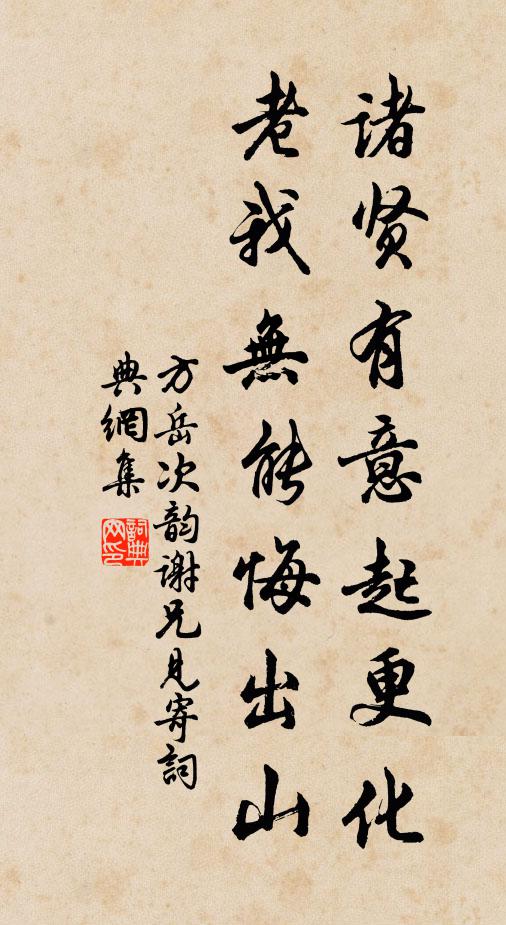 诸贤有意起更化
老我無能悔出山
方岳次韵谢兄見寄詞
典網集
詞典网印